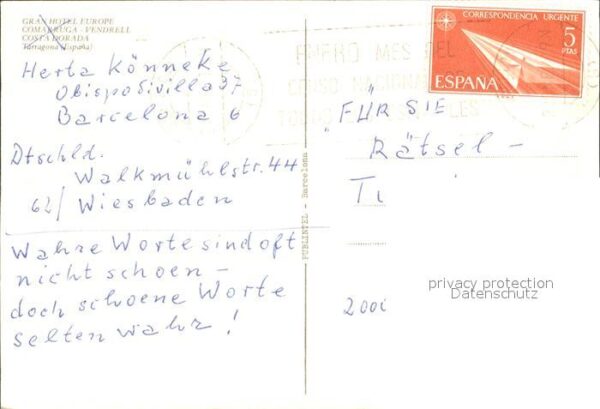 GRAN HOTEL EUROPE
COMARRUGA - VENDRELL
COSTA DORADA
Tarragona (España)
Herta Könneke
Obispo Sivilla 37
Barcelona 6
Dtschld.
Walkmühlstr. 44
62/ Wiesbaden
Wahre Worte sind oft
nicht schoen -
doch schoene Worte
selten wahr!
PUBLINTEL - Barcelona
ENERO MES DEL
CENSO NACIONAL
CORRESPONDENCIA URGENTE
5
PTAS
ESPAÑA
"FÜR SIE
Rätsel -
Ti
200i
privacy protection
Datenschutz